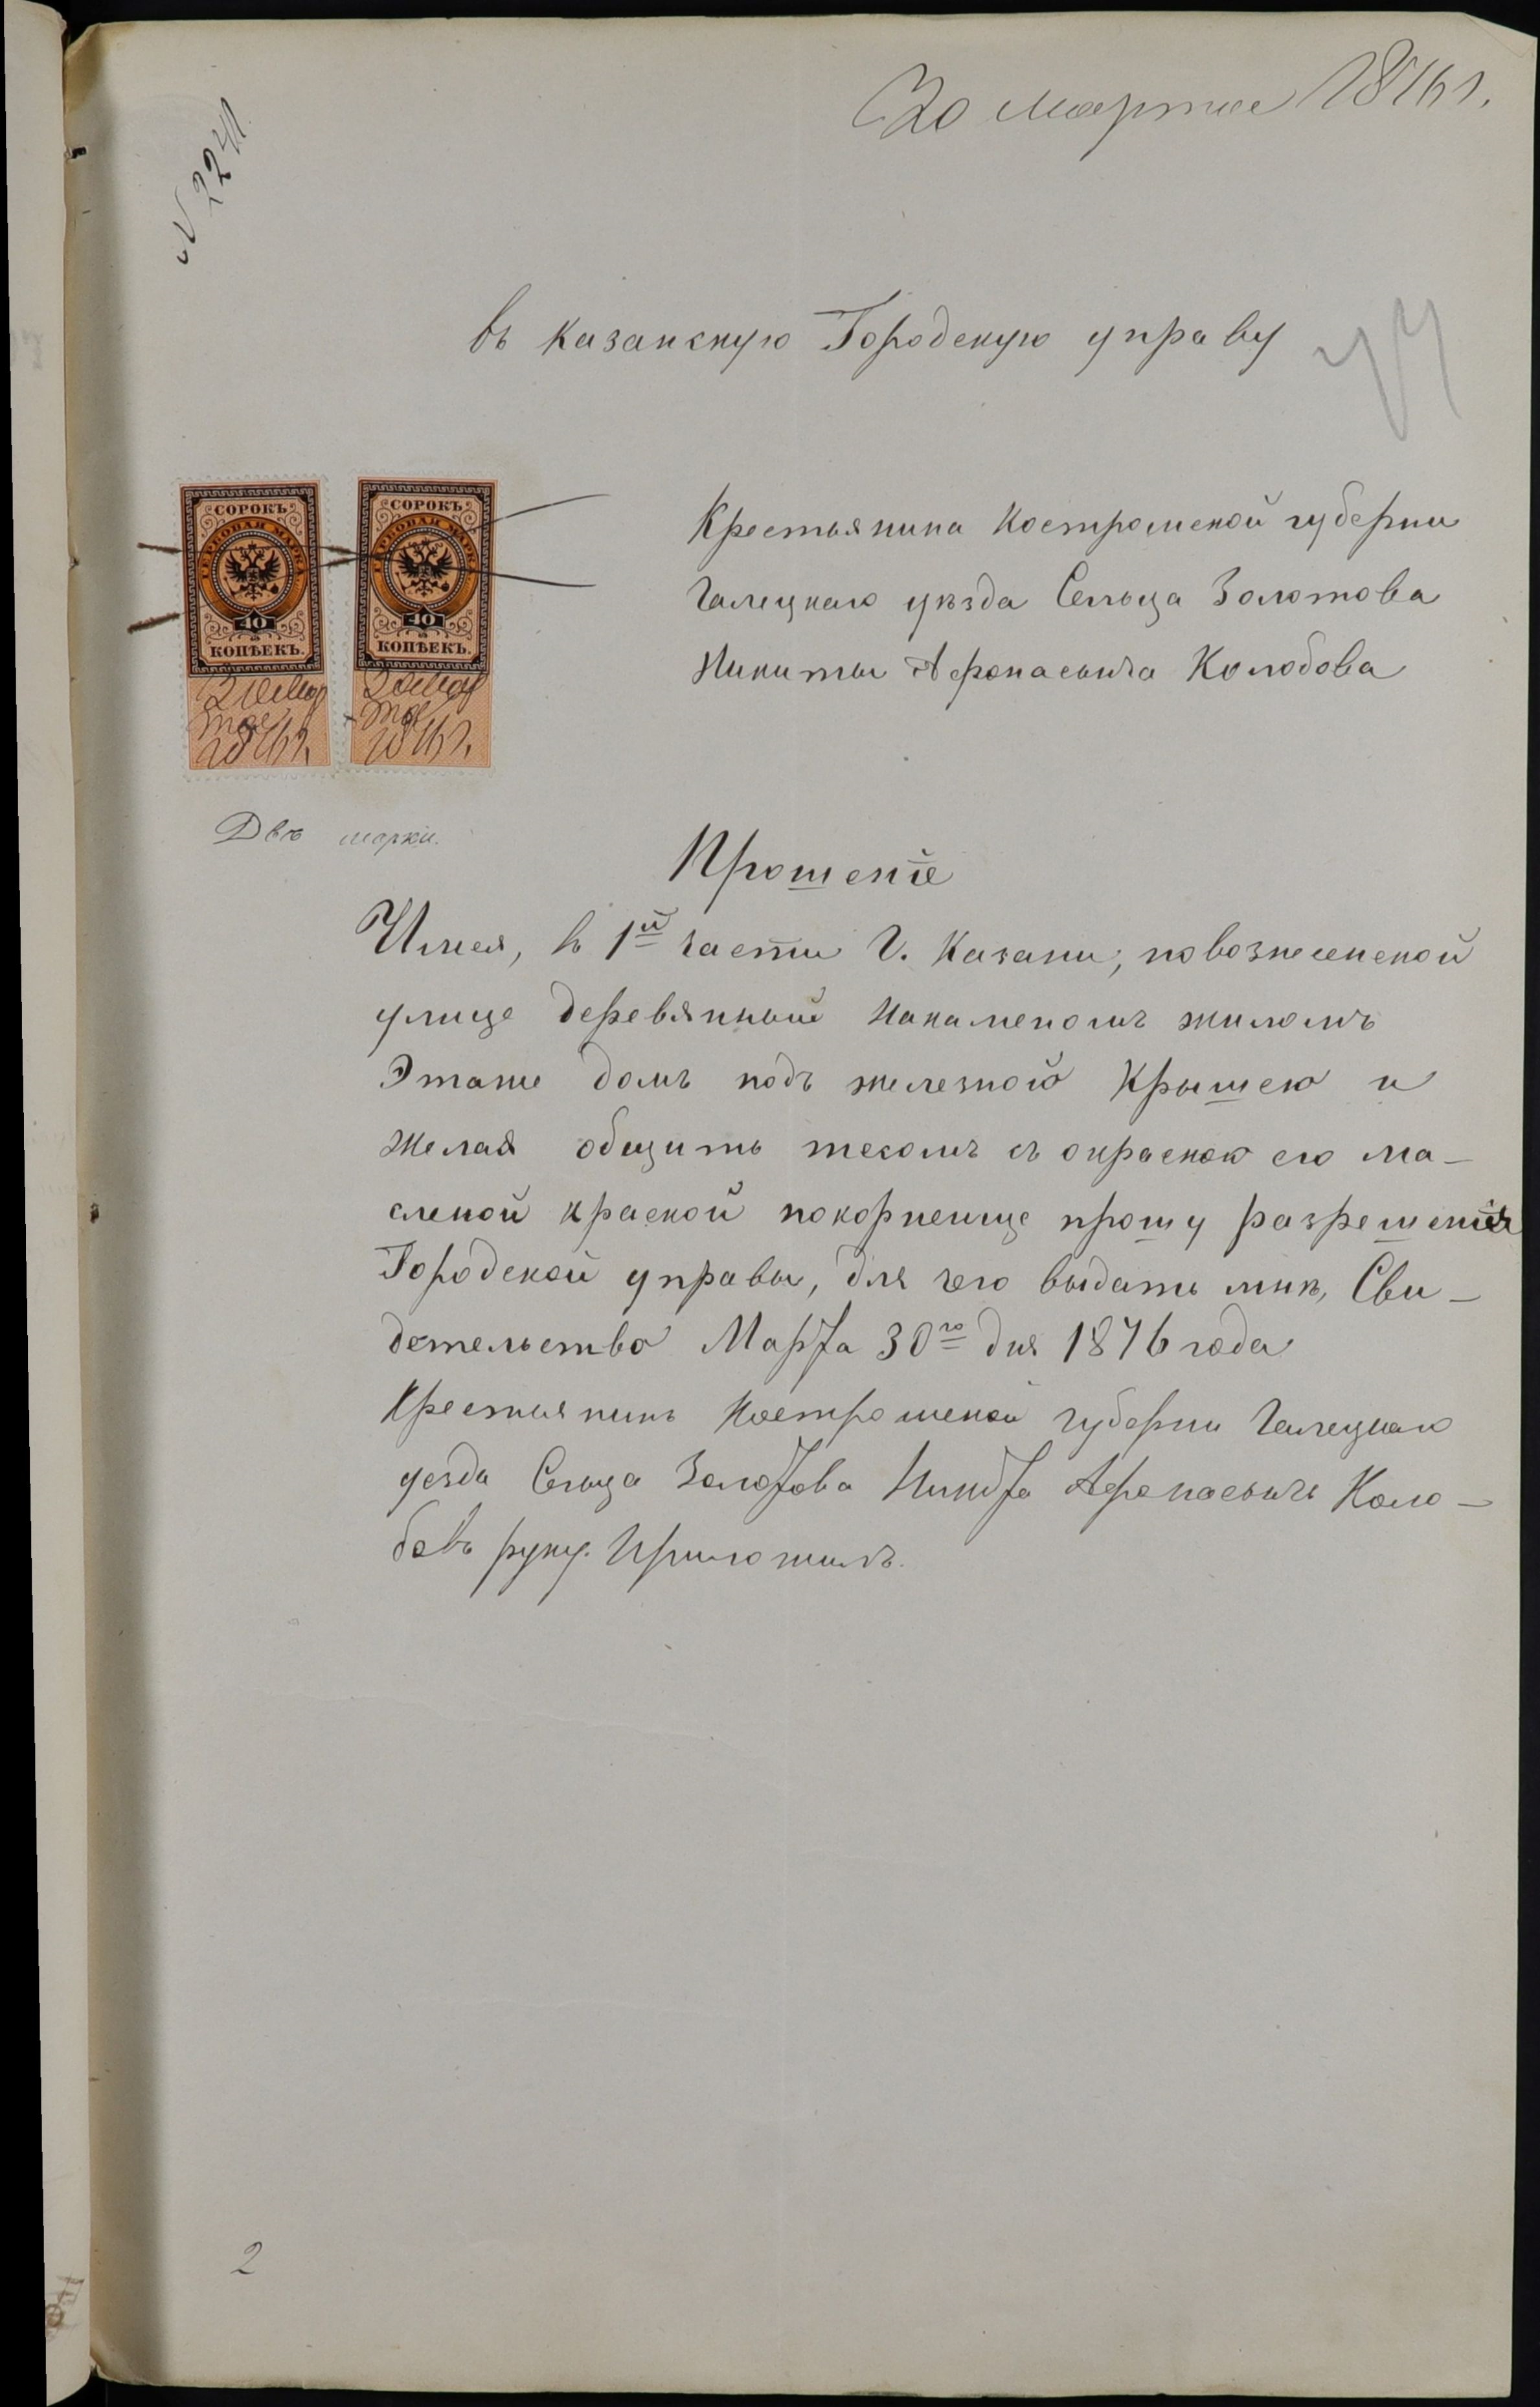 30 Марта 1876 г.
№ 2241.
Въ Казанскую Городскую управу
СОРОКЪ
ГЕРБОВАЯ МАРКА
40
КОПѢЕКЪ.
30 Мар
та
1876 г.
СОРОКЪ
ГЕРБОВАЯ МАРКА
40
КОПѢЕКЪ.
30 Мар
та
1876 г.
Крестьянина Костромской губерни
Галецкаго уѣзда Сельца Золотова
Никиты Афонасьича Колобова
Двѣ марки.
Прошеніе
Имея, въ 1й части Г. Казани, по вознесенской
улице деревянный на каменомъ жиломъ
Этаже домъ подъ железной Крышею и
Желая обшить тесомъ съ окраскою его ма-
сленой краской покорнейше прошу разрешенія
Городской управы, для чего выдать мнѣ, Сви-
детельство Марта 30го дня 1876 года
Крестьянинъ Костромской губерни Галецкаго
уезда Сельца Золотова Никита Афонасьичъ Коло-
бовъ руку Приложилъ.
2